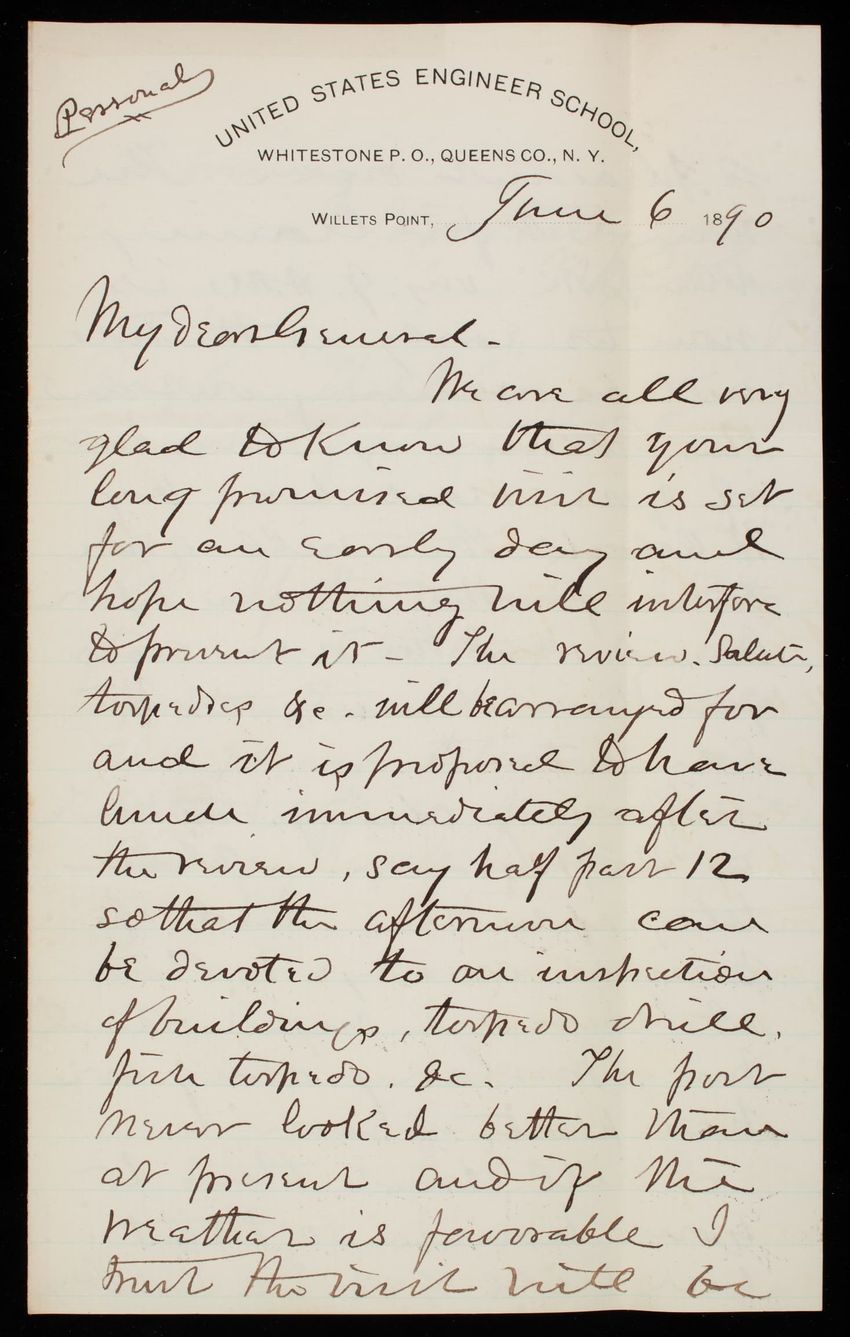 Personal
UNITED STATES ENGINEER SCHOOL,
WHITESTONE P. O., QUEENS CO., N. Y.
WILLETS POINT, June 6 1890
My dear General -
We are all very
glad to know that your
long promised visit is set
for an early day and
hope nothing will interfere
to prevent it - The review. Salute,
torpedoes &c. will be arranged for
and it is proposed to have
lunch immediately after
the review, say half past 12
so that the afternoon can
be devoted to an inspection
of buildings, torpedo drill,
fish torpedo. &c. The post
never looked better than
at present and if the
weather is favorable I
trust the visit will be